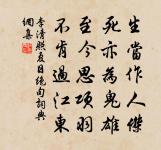 生當作人傑
死亦為鬼雄
至今思項羽
不肯過江東
李清照夏日絕句詞典
網集